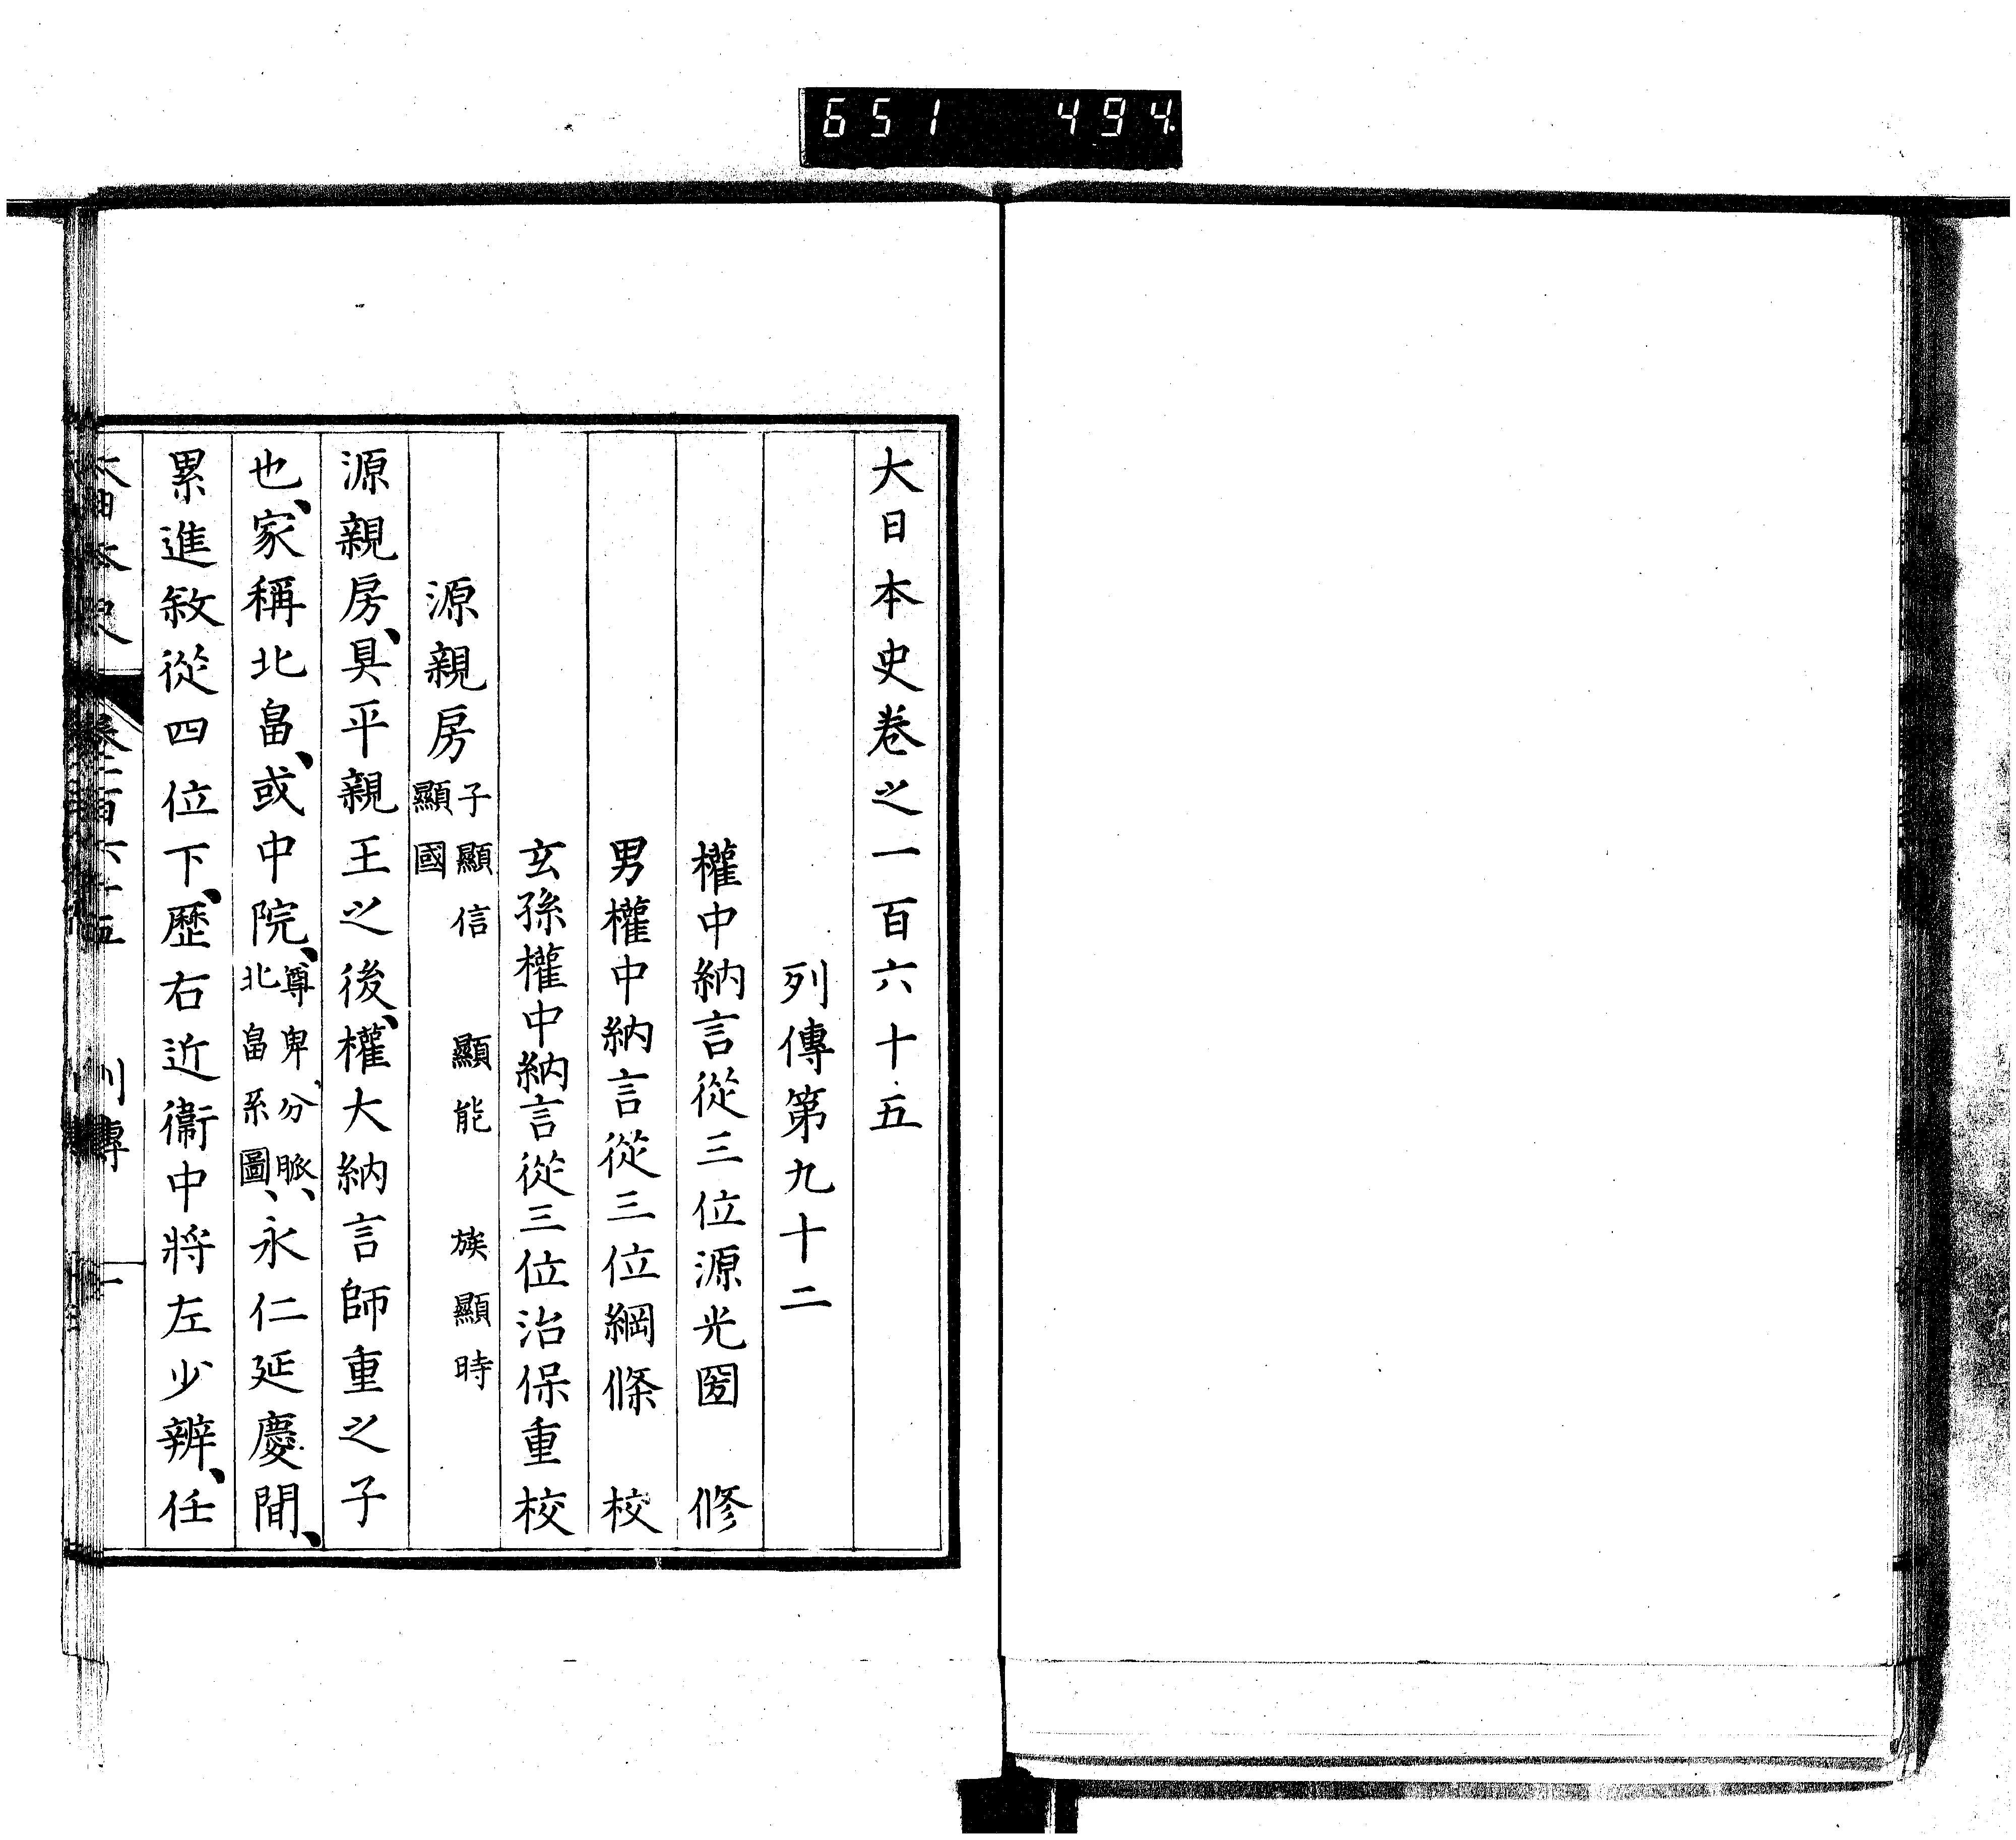 651 494
大日本史卷之一百六十五
列傳第九十二
權中納言從三位源光圀 修
男權中納言從三位綱條 校
玄孫權中納言從三位治保重校
源親房 子顯信 顯能 族顯時
顯國
源親房、具平親王之後、權大納言師重之子
也、家稱北畠、或中院、尊卑分脈、
北畠系圖、永仁延慶間、
累進敍從四位下、歷右近衞中將左少辨、任
大日本史 卷一百六十五 列傳 一